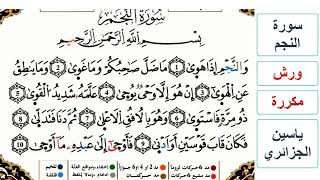 سُورَةُ النَّجْمِ
بِسْمِ اللَّهِ الرَّحْمَٰنِ الرَّحِيمِ
وَالنَّجْمِ إِذَا هَوَىٰ ① مَا ضَلَّ صَاحِبُكُمْ وَمَا غَوَىٰ ② وَمَا يَنطِقُ
عَنِ الْهَوَىٰ ③ إِنْ هُوَ إِلَّا وَحْيٌ يُوحَىٰ ④ عَلَّمَهُ شَدِيدُ الْقُوَىٰ ⑤
ذُو مِرَّةٍ فَاسْتَوَىٰ ⑥ وَهُوَ بِالْأُفُقِ الْأَعْلَىٰ ⑦ ثُمَّ دَنَا فَتَدَلَّىٰ ⑧
فَكَانَ قَابَ قَوْسَيْنِ أَوْ أَدْنَىٰ ⑨ فَأَوْحَىٰ إِلَىٰ عَبْدِهِ مَا أَوْحَىٰ ⑩
سورة
النجم
ورش
مكررة
ياسين
الجزائري